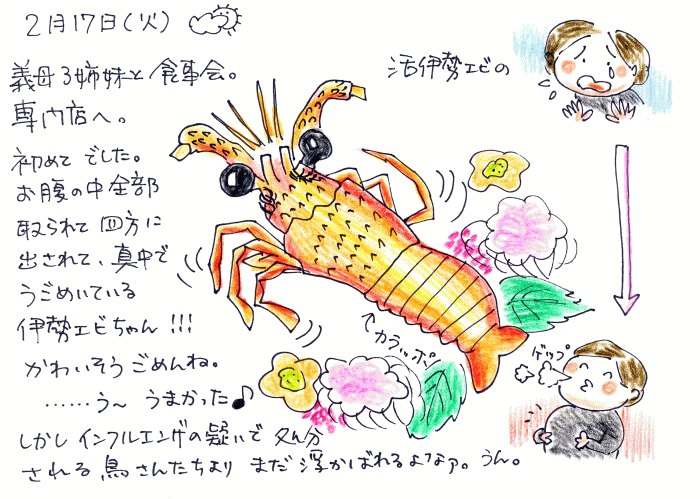 2月17日(火)
義母3姉妹と食事会。
専門店へ。
活伊勢エビの
初めてでした。
お腹の中全部
取られて四方に
出されて、真中で
うごめいている
伊勢エビちゃん!!!
かわいそうごめんね。
……う〜うまかった♪
しかしインフルエンザの疑いで処分
される鳥さんたちよりまだ浮かばれるよなァ。うん。
カラッポ
ゲップ